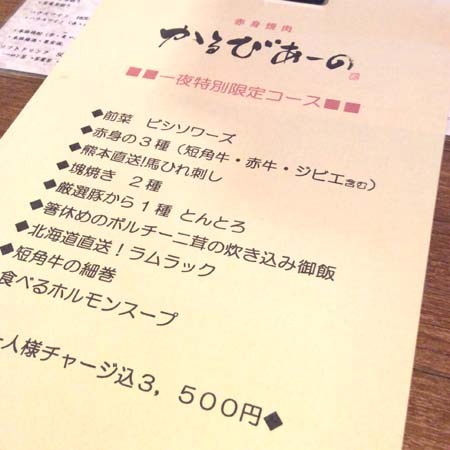 赤身焼肉
かるびあーの
■■一夜特別限定コース■■
◆前菜 ビシソワーズ
◆赤身の3種(短角牛・赤牛・ジビエ含む)
◆熊本直送!馬ひれ刺し
◆塊焼き 2種
◆厳選豚から1種 とんとろ
◆箸休めのポルチーニ茸の炊き込み御飯
◆北海道直送!ラムラック
◆短角牛の細巻
食べるホルモンスープ
人様チャージ込3,500円◆